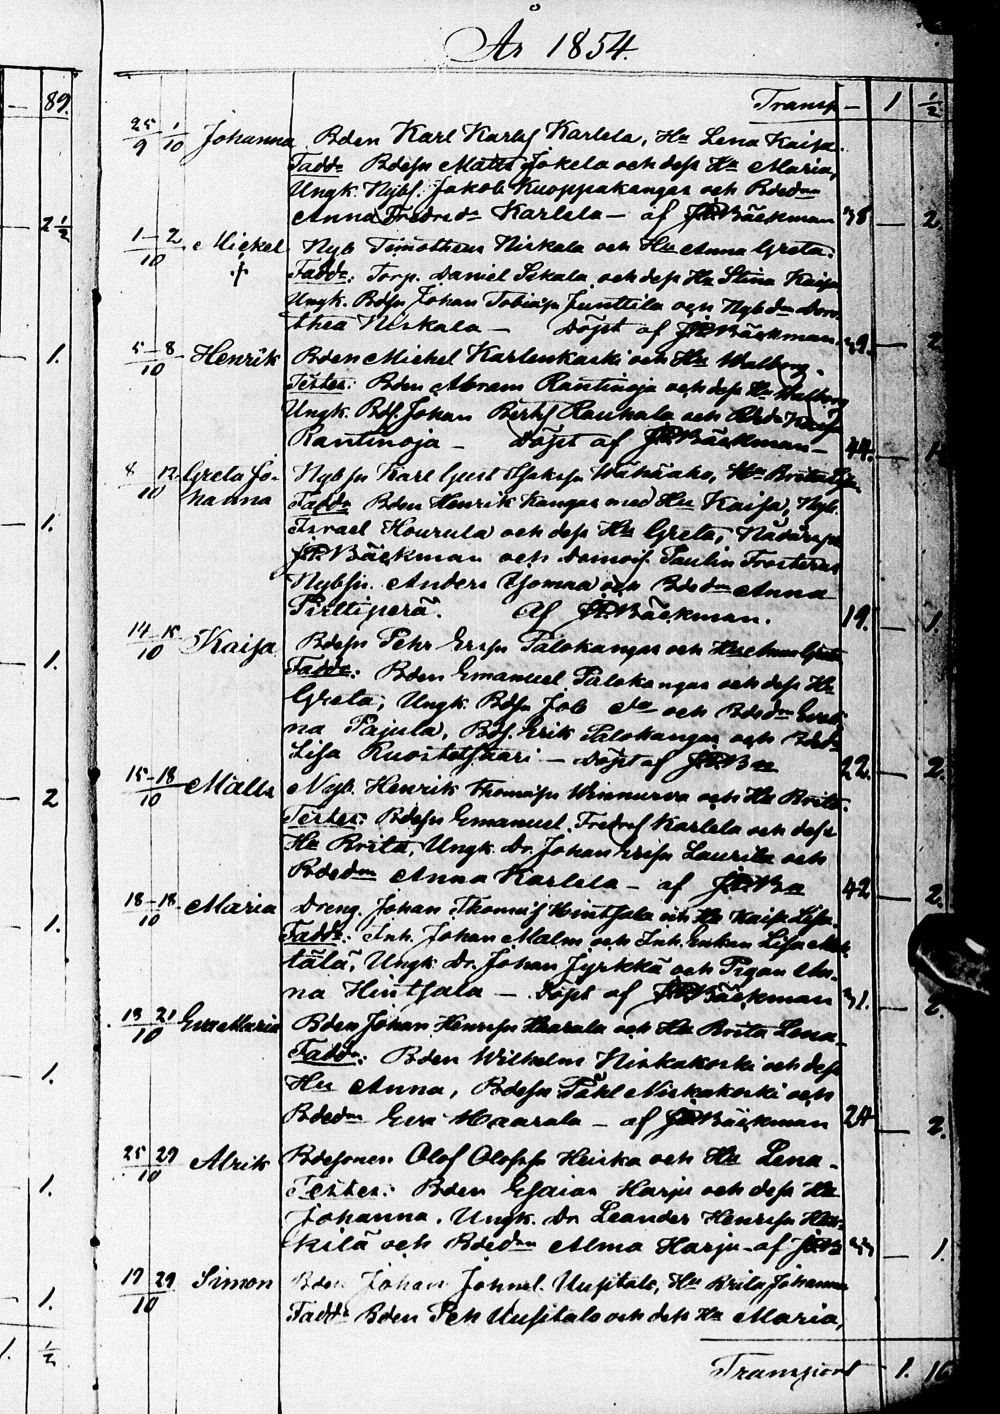 År 1854.
89.
Transp — 1 1/2
25/9 1/10 Johanna Bden Karl Karlss Karlela, Hu Lena Kaisa.
Fadd: Bdesn Matts Jokela och dess Hu Maria,
Ungk. Nybs. Jakob Kuoppakangas och Bdedn
2 1/2 Anna Fredrsdr Karlela — af JR Bäckman 38 — 2.
1–2/10 Mickel Nyb Timotheus Niskala och Hu Anna Greta.
Fadd: Torp. Daniel Sikala och dess Hu Stina Kaisa
Ungk. Bdsn Johan Tobiass Junttila och Nybdn Doro-
thea Niskala — Döpt af JR Bäckman 39. — 2
1. 5–8/10 Henrik Bden Michel Karlenkaski och Hu Walborg.
Testes: Bden Abram Rantinoja och dess Hu Walborg
Ungk. Bds. Johan Laukala och Kaisa
Rantinoja — Döpt af JR Bäckman — 44. — 1.
8 12/10 Greta Jo- Nybsn Karl Gust Wähäaho, Hu Brita
hanna Fadd: Bden Henrik Kangas med Hu Kaisa, Nyb.
1. Israel Hourula och dess Hu Greta,
JR Bäckman och Demois. Paulin Frosterus
Nybsn. Anders Ojomaa och Bdedn Anna
Pirttiperä. Af JR Bäckman. 19. — 1.
14–15/10 Kaisa Bdesn Pehr Erssn Palokangas och Hu Anna Greta
1. Fadd: Bden Emanuel Palokangas och dess Hu
Greta, Ungk. Bdsn Job och Bdedn
na Pajula, Bds. Erik Palokangas och Bdedn
Lisa Ruostetsaari — döpt af JR Ba 22. — 2.
15–18/10 Matts Nyb. Henrik Thomassn Winnurva och Hu Brita.
2 Testes: Bdesn Emanuel Fredrss Karlela och dess
Hu Brita, Ungk. Dr. Johan Erssn Laurila och
Bdedn Anna Karlela — af JR Ba 42 — 2.
18–18/10 Maria Dreng. Johan Thomass Hintsala och Hu Kaisa Lisa.
1. Fadd: Inh. Johan Malm och Inh. Enkan Lisa
tälä, Ungk. Dr. Johan Jyrkkä och Pigan An-
na Hintsala — Döpt af JR Bäckman 31. — 2.
13 21/10 Eva Maria Bden Johan Henrssn Haarala och Hu Brita Lena.
Fadd: Bden Wilhelm Niskakoski och dess
1. Hu Anna, Bdesn Påhl Niskakoski och
Bdedn Eva Haarala — af JR Bäckman 24 — 2.
25 29/10 Alrik Bdesonen Olof Olofssn Heiska och Hu Lena.
1. Testes: Bden Esaias Harju och dess Hu
Johanna, Ungk. Dr Leander Henrssn
kilä och Bdedn Alma Harju — af JRB 33 — 1.
19 29/10 Simon Bden Johan Johnss. Uusitalo, Hu Brita Johanna
1. Fadd: Bden Pet Uusitalo och dess Hu Maria,
1. 1/2 Transport 1. 16